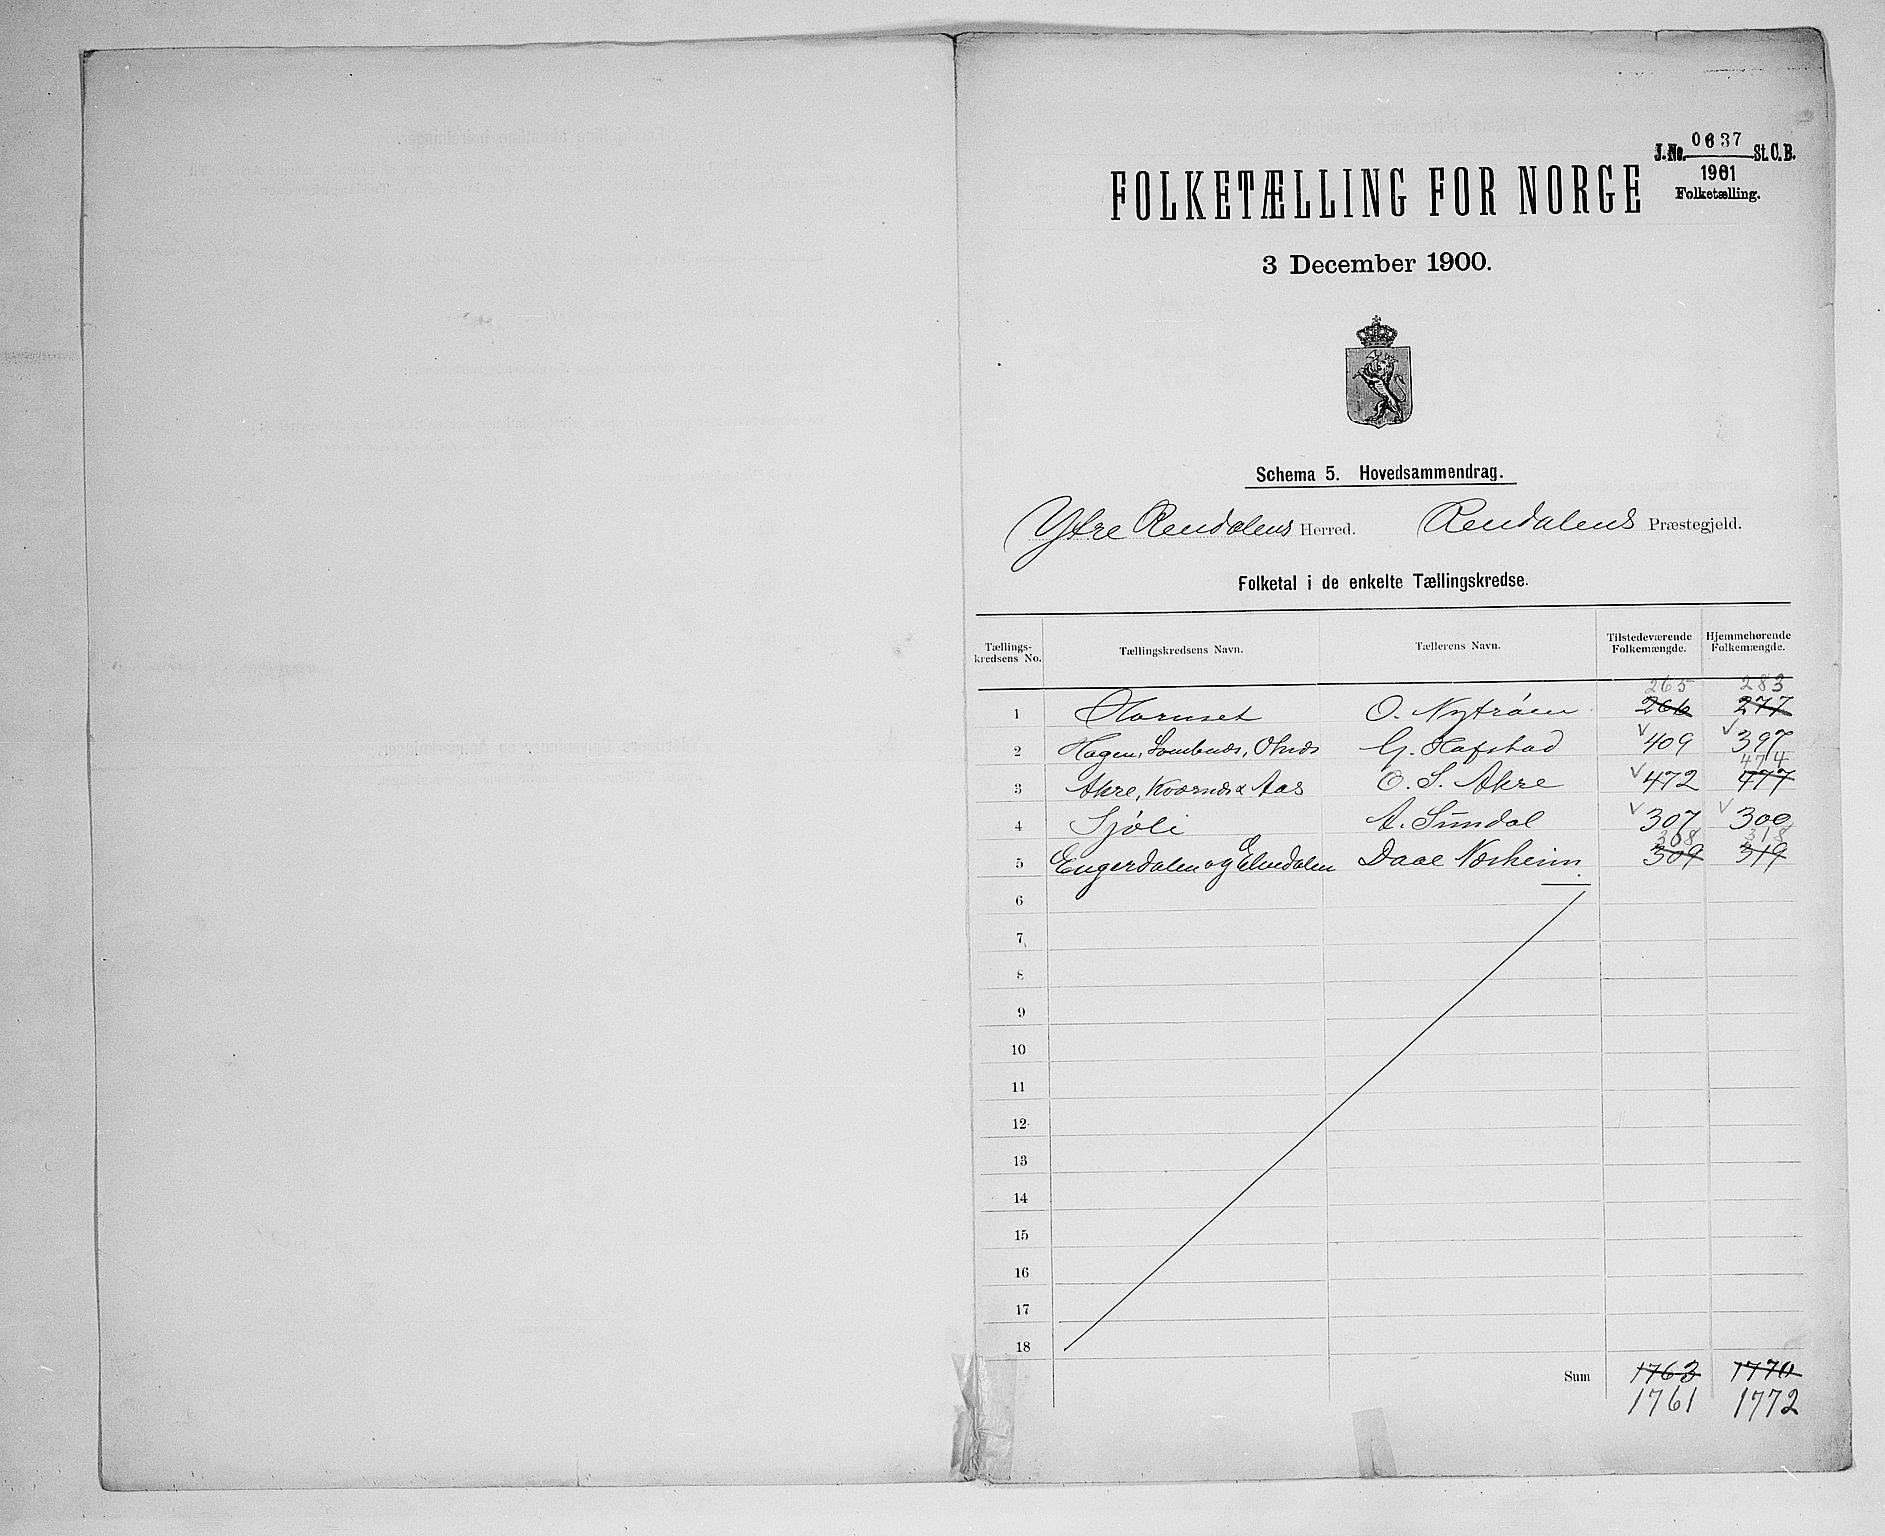 J. No. 0637 St. C. B.
1901
Folketælling.
FOLKETÆLLING FOR NORGE
3 December 1900.
Schema 5. Hovedsammendrag.
Ytre Rendalens Herred. Rendalens Præstegjeld.
Folketal i de enkelte Tællingskredse.
Tællings-kredsens No. Tællingskredsens Navn. Tællerens Navn. Tilstedeværende Folkemængde. Hjemmehørende Folkemængde.
265 283
1 Hornset O. Nytrøen 266 277
2 Hagen, G. Hafstad 409 397
474
3 Akre, Kværnes & Aas O. S. Akre 472 477
4 Sjøli A. Sundal 307 300
308 318
5 Engerdalen og Elvedalen Daae Næsheim 309 319
6
7
8
9
10
11
12
13
14
15
16
17
18
Sum 1763 1770
1761 1772